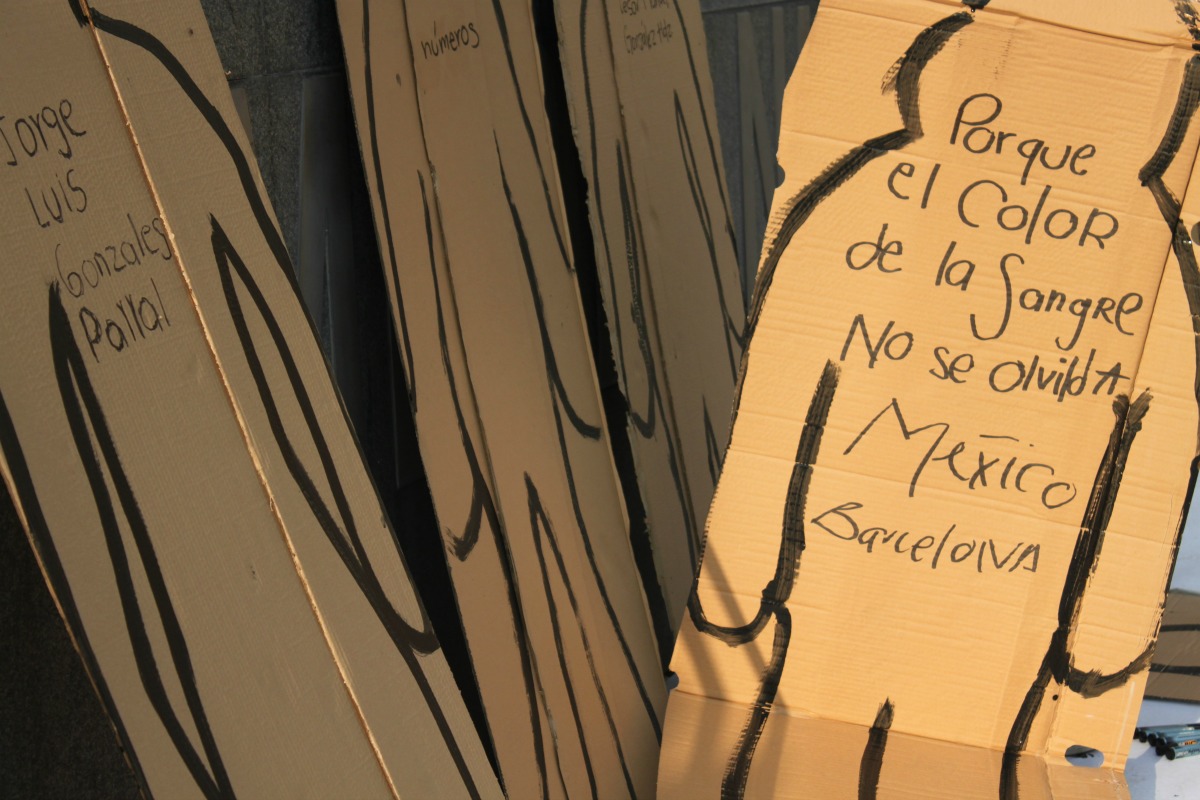 Jorge
LUIS
Gonzales
Parral
números
González Hdz
Porque
el Color
de la Sangre
No se olvida
México
Barcelona